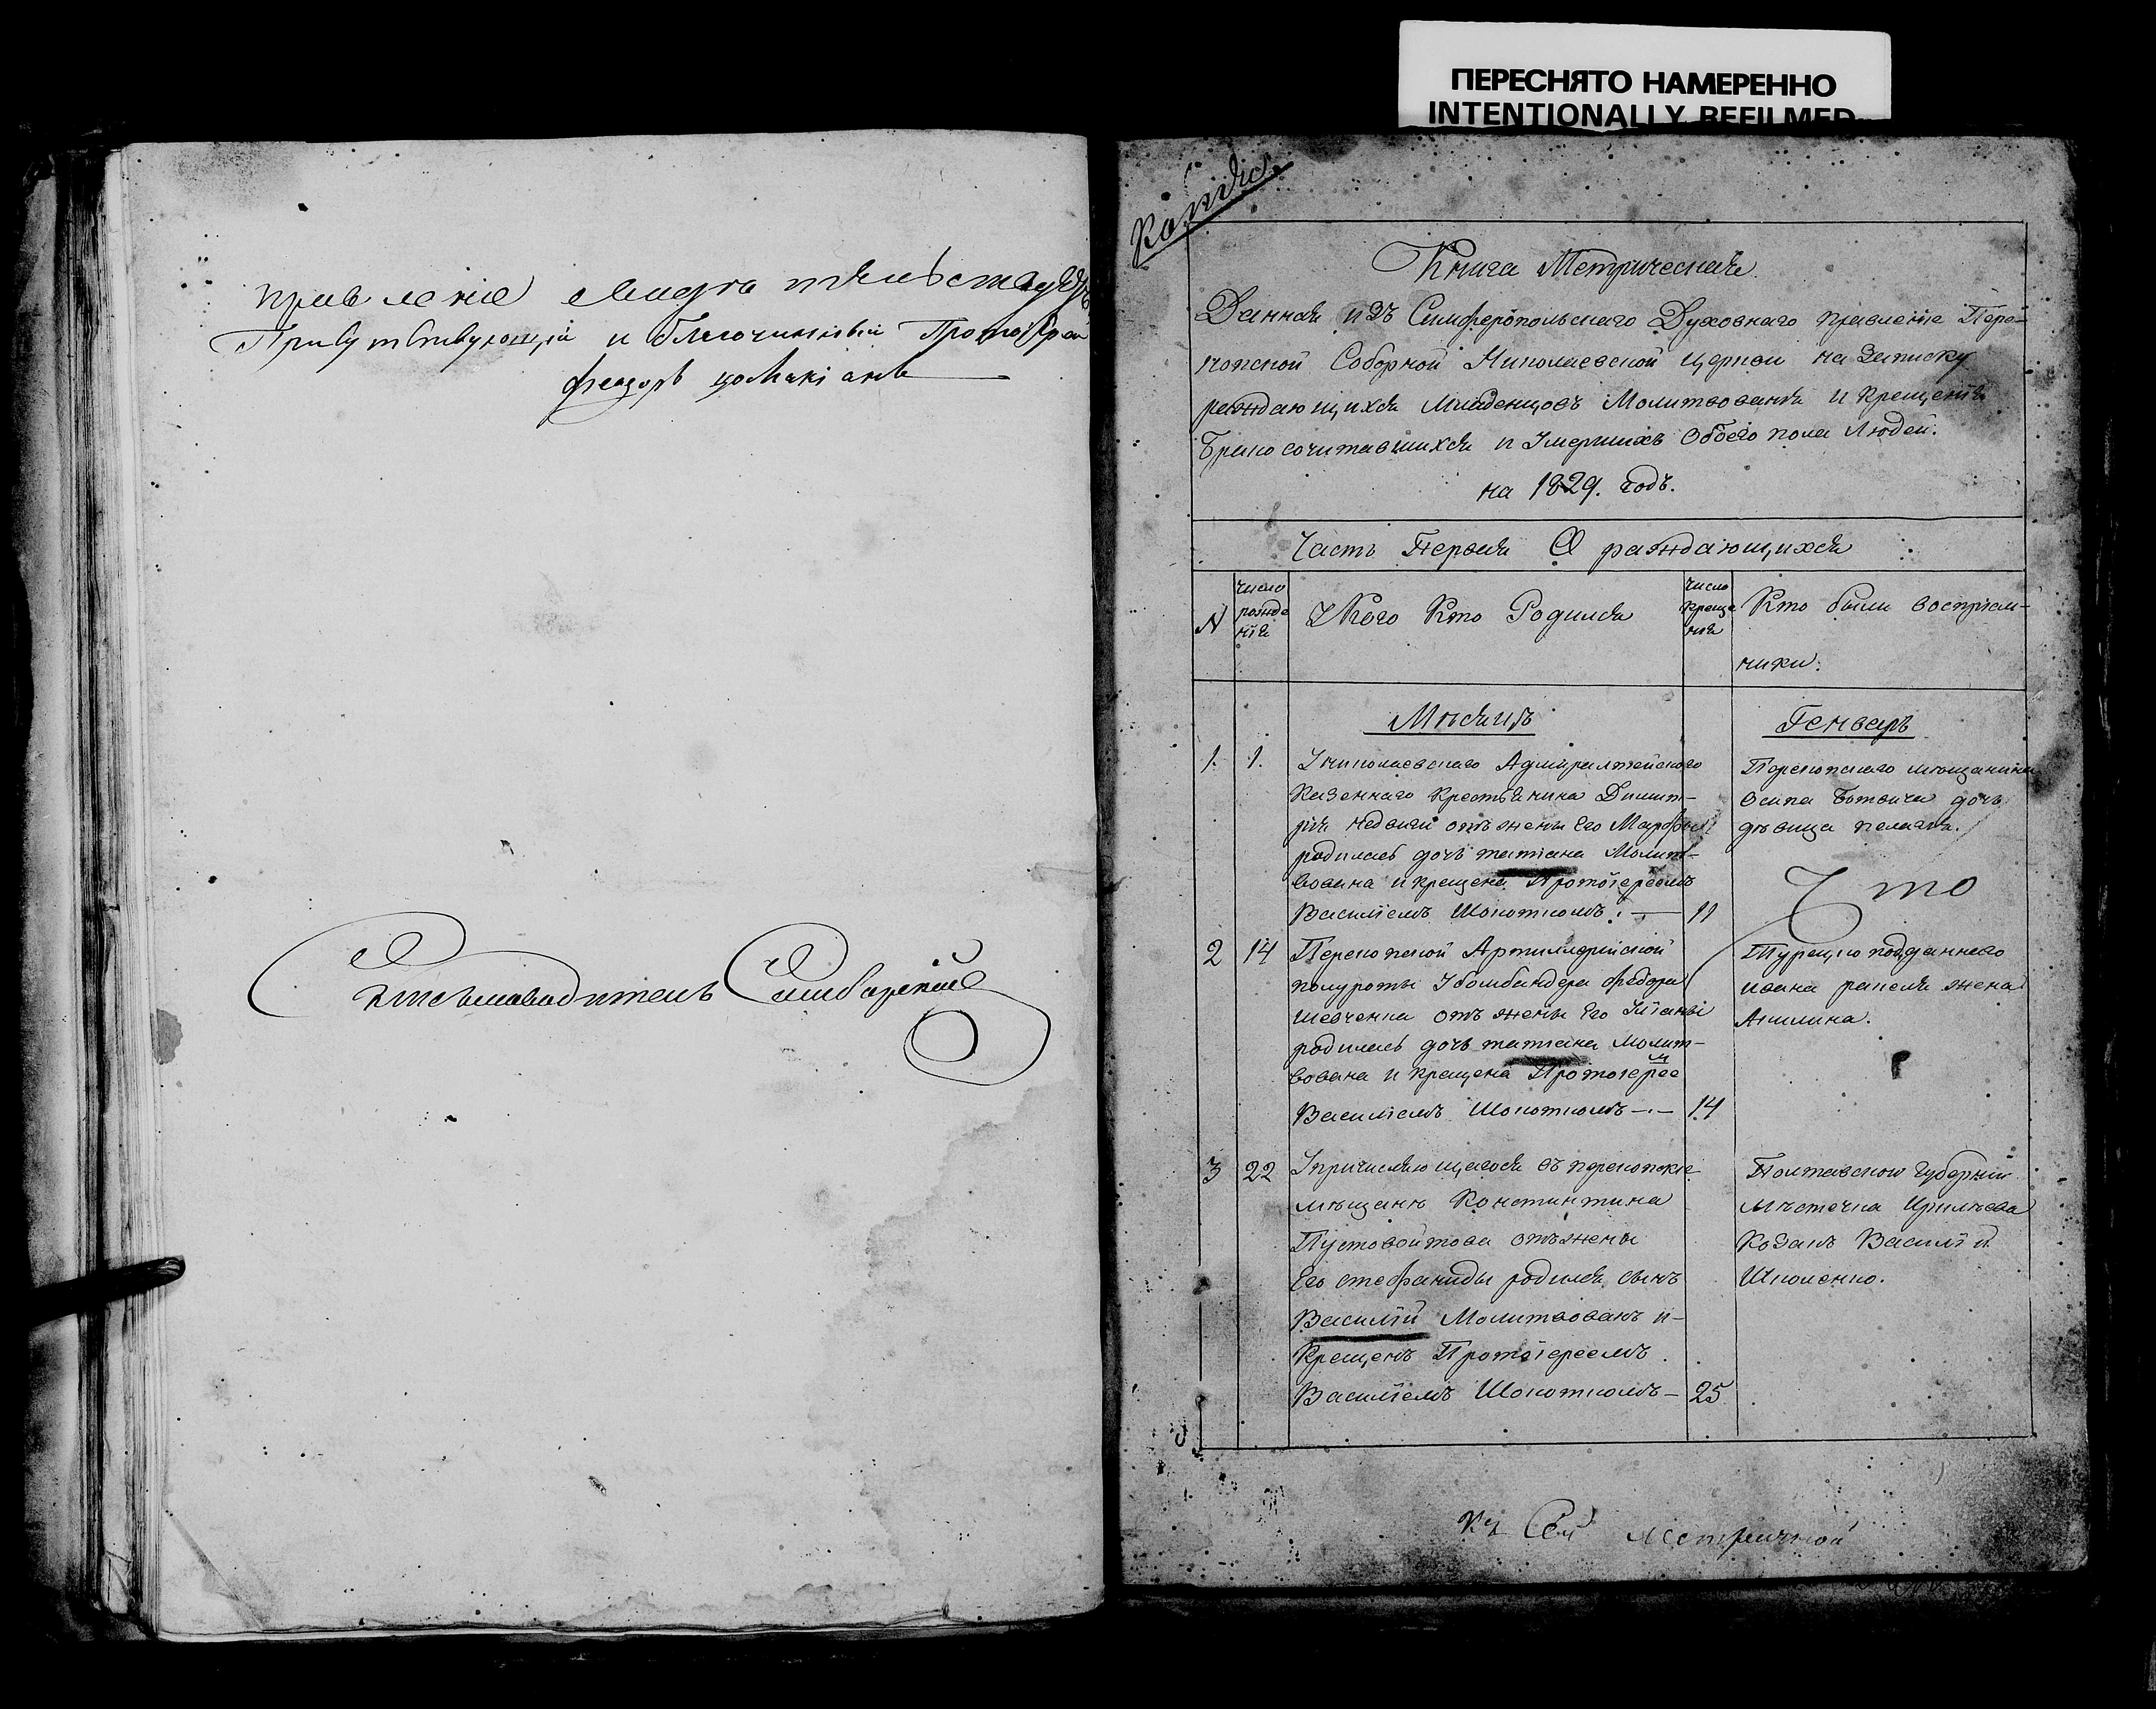 ПЕРЕСНЯТО НАМЕРЕННО
INTENTIONALLY REFILMED
правление
Присутствующій и благочинный Протоіерей
Феодоръ
Письмоводитель
Копія
Книга Метрическая
Данная изъ Симферопольскаго Духовнаго правленія Пере-
копской Соборной Николаевской церкви на записку
раждающихся младенцовъ Молитвованія и Крещенія
Бракосочитавшихся и Умершихъ Обоего пола Людей.
на 1829. годъ.
Часть Первая О раждающихся
N
число рожде нія
У Кого Кто Родился
число креще нія
Кто были воспріем-
ники.
Мѣсяцъ
Генваръ
1. 1. У николаевскаго Адмиралтейского
Казеннаго крестьянина Димит-
рія отъ жены Его Марфы
родилась дочь татіана Молит-
вована и крещена Протоіереемъ
Василіемъ Шокоткомъ. — 11
Перекопскаго мѣщанина
Осипа дочь
дѣвица пелагія.
Что
2 14 Перекопской Артиллерійской
полуроты У бомбандера Федора
шевченка отъ жены Его
родилась дочь татіана молит-
вована и крещена Протоіерее м
Василіемъ Шокоткомъ — 14
Турецко подданнаго
ивана жена
Акилина.
3 22 У причисляющагося въ перекопскіе
мѣщане Константина
Пустовойтова отъ жены
Его стефаниды родился сынъ
Василій Молитвованъ и
Крещенъ Протоіереемъ
Василіемъ Шокоткомъ — 25
Полтавской губерніи
мѣстечка
Козакъ Василій
Сей метричной